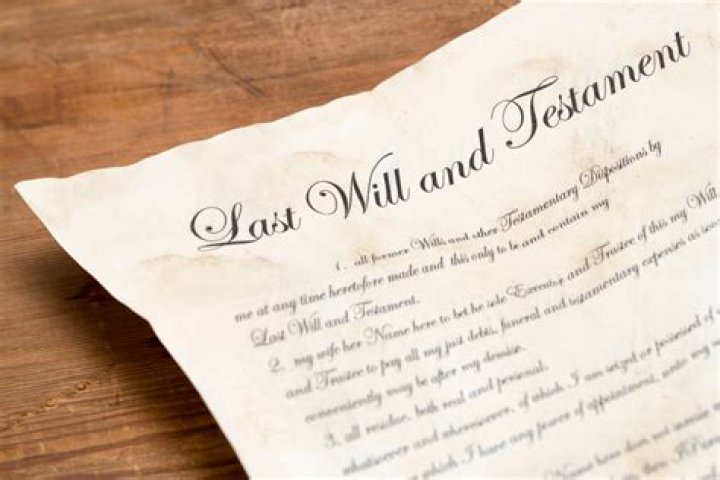 Last Will and Testament
1. all former Wills and other Testamentary Dispositions by
me at any time heretofore made and this only to be and contain my
Last Will and Testament.
2. my wife her Name here to bet he sole Executor and Trustee of this my Will
and Trustee to pay all my just debts, funeral and testamentary expenses as soon
conveniently may be after my demise.
3. all residue, both real and personal,
whatsoever and wheresoever, of which I am seized or possessed of
or which I have any power of appointment, unto my
Name here does not survive
then I